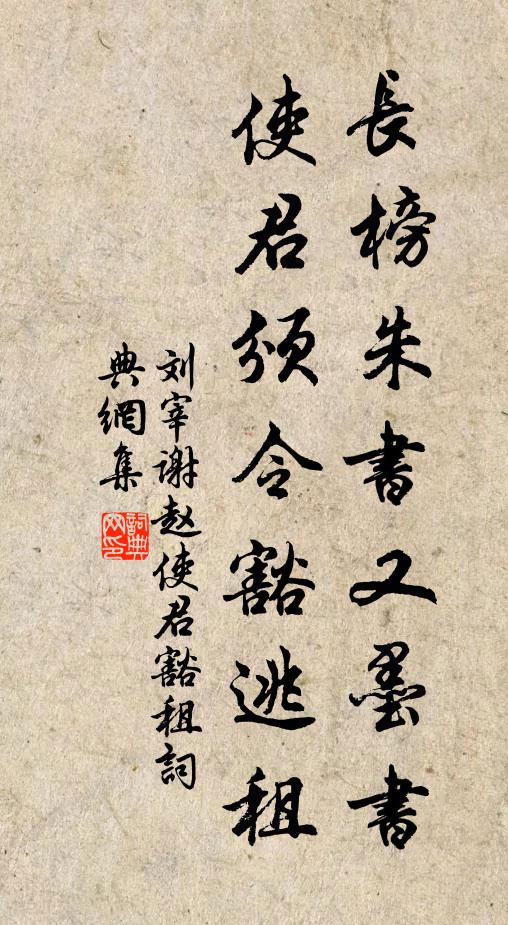 長榜朱書又墨書
使君頒令豁逃租
刘宰谢赵使君豁租詞
典網集
詞典网印